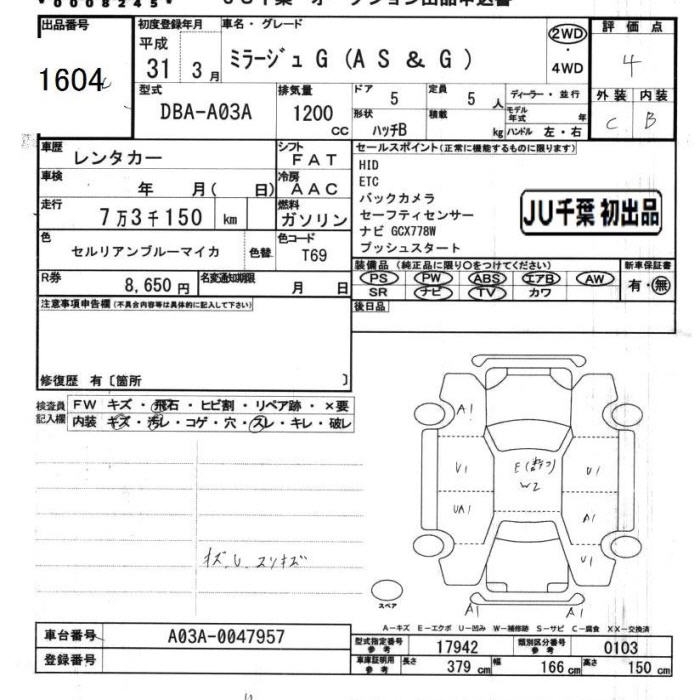 *0008245*
JU千葉 オークション出品申込書
出品番号 初度登録年月 車名・グレード 2WD 評価点
1604 平成 31 3月 ミラージュ G (AS & G) ・ 4WD 4
型式 排気量 ドア 定員 ディーラー・並行 外装 内装
DBA-A03A 1200 CC 5 5 人 モデル年式 年 C B
形状 ハッチB 積載 kg ハンドル 左・右
車歴 レンタカー シフト FAT セールスポイント(正常に機能するものに限ります)
車検 年 月( 日) 冷房 AAC HID
ETC
走行 7万3千150 km 燃料 ガソリン バックカメラ
セーフティセンサー JU千葉 初出品
色 セルリアンブルーマイカ 色替 色コード T69 ナビ GCX778W
プッシュスタート
R券 8,650円 名変通知期限 月 日 装備品 (純正品に限り〇をつけてください) 新車保証書
PS PW ABS エアB AW 有・無
SR ナビ TV カワ
注意事項申告欄(不具合内容等は具体的に記入して下さい) 後日品
修復歴 有〔箇所 〕
検査員記入欄 FW キズ・飛石・ヒビ割・リペア跡・×要
内装 キズ・汚レ・コゲ・穴・スレ・キレ・破レ
A1
U1 E U1
W2
UA1 A1
キズ、U、スリキズ U1
スペア A1 A1
A-キズ E-エクボ U-凹み W-補修跡 S-サビ C-腐食 XX-交換済
車台番号 A03A-0047957 型式指定番号 参考 17942 類別区分番号 参考 0103
登録番号 車庫証明用 参考 長さ 379 cm 幅 166 cm 高さ 150 cm